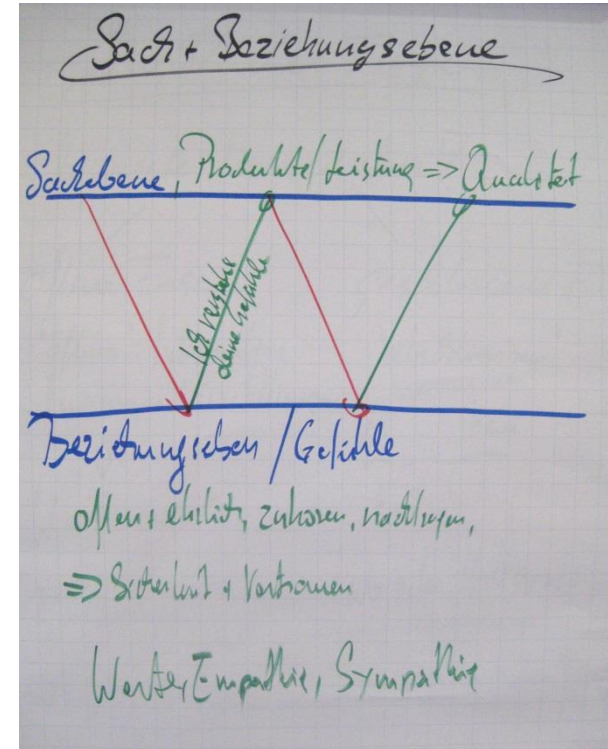 Sach + Beziehungsebene
Sachebene, Produkte/Leistung => Qualität
Ich verstehe
deine Gefühle
Beziehungseben / Gefühle
offen + ehrlich, zuhören, nachfragen,
=> Sicherheit + Vertrauen
Werte, Empathie, Sympathie